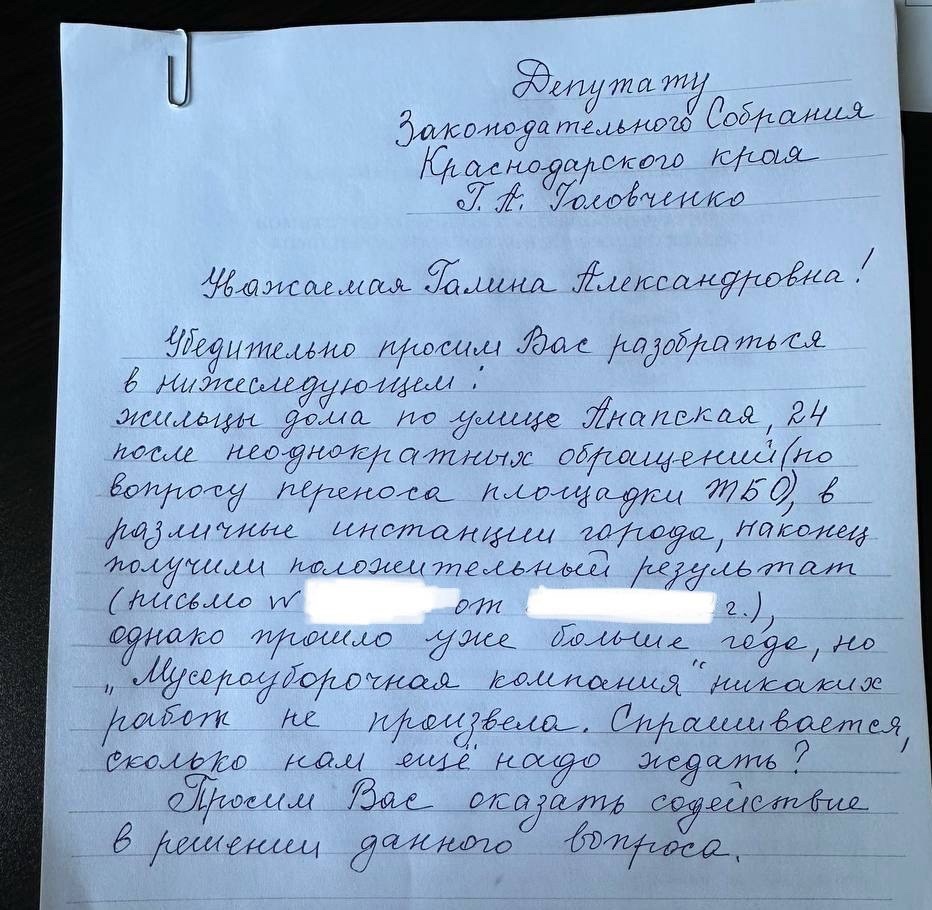 Депутату
Законодательного Собрания
Краснодарского края
Г. А. Головченко
Уважаемая Галина Александровна!
Убедительно просим Вас разобраться
в нижеследующем:
жильцы дома по улице Анапская, 24
после неоднократных обращений (по
вопросу переноса площадки ТБО), в
различные инстанции города, наконец
получили положительный результат
(письмо N от г.),
однако прошло уже больше года, но
„Мусороуборочная компания“ никаких
работ не произвела. Спрашивается,
сколько нам ещё надо ждать?
Просим Вас оказать содействие
в решении данного вопроса.